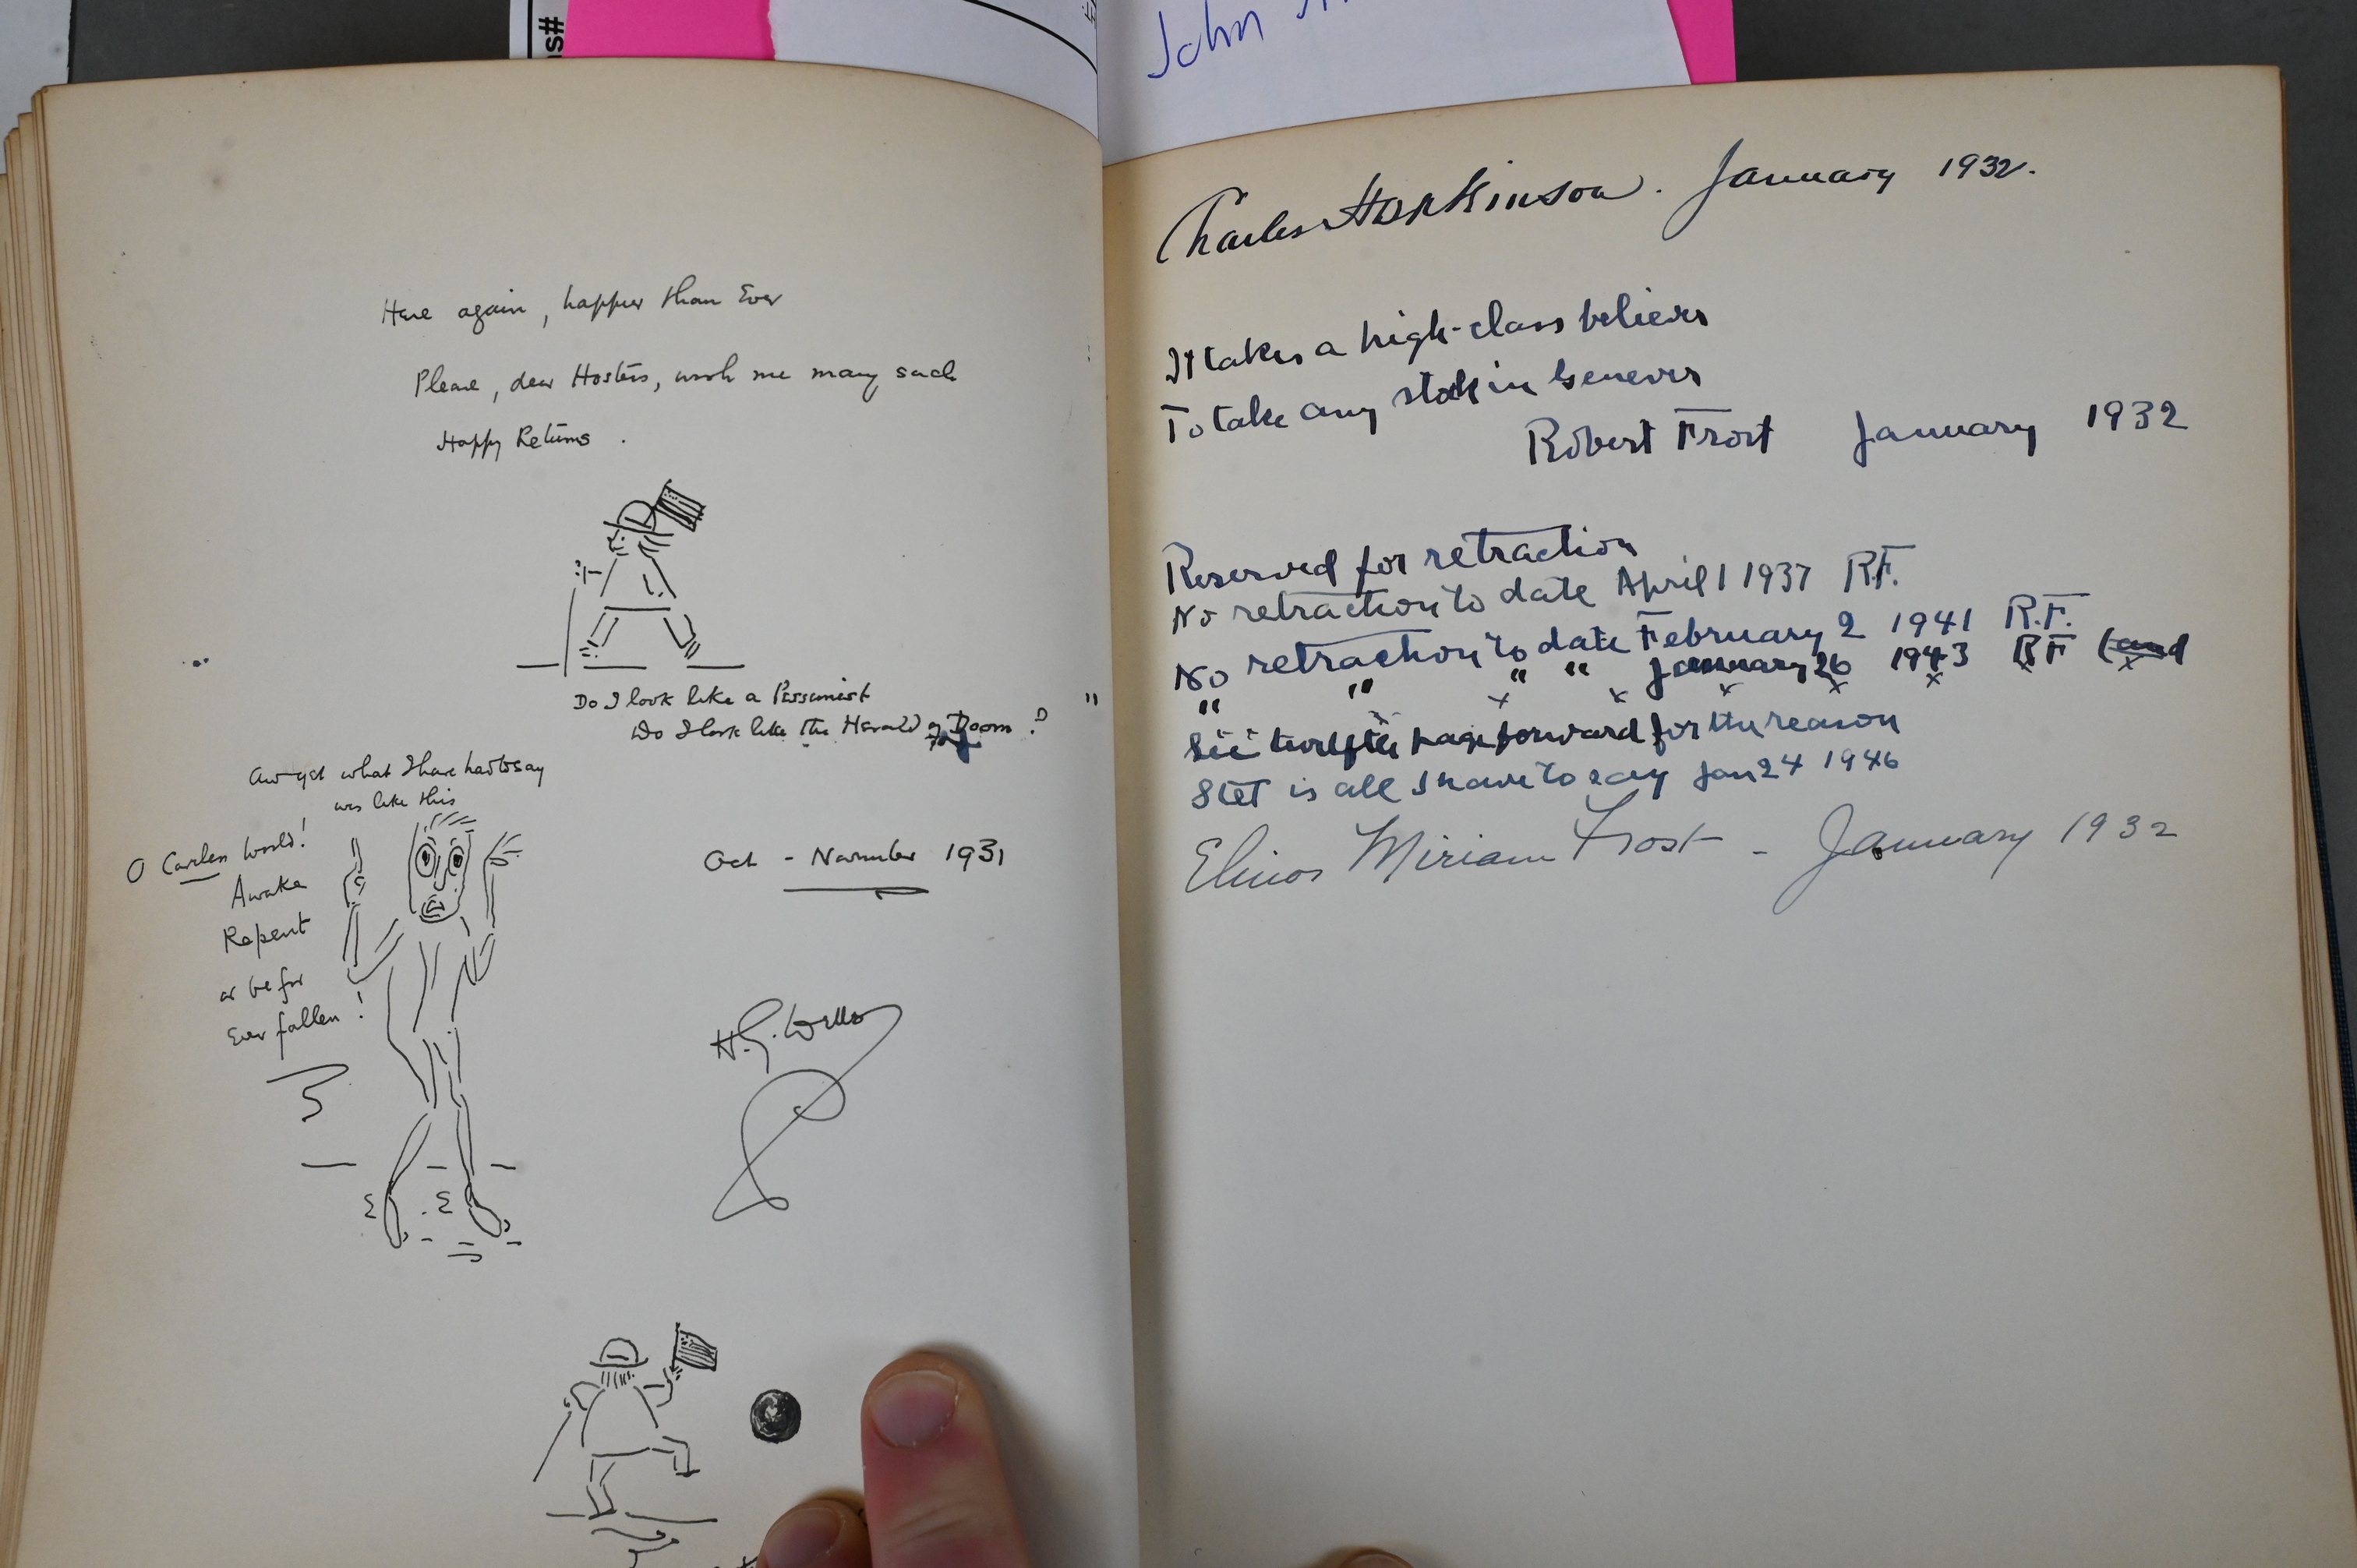 s#
John
Here again, happier than Ever
Please, dear Hostess, wish me many such
Happy Returns.
Do I look like a Pessimist
Do I look like the Herald of Doom?
And yet what I have had to say
was like this
O Careless World!
Awake
Repent
or be for
Ever fallen!
Oct - November 1931
H.G. Wells
Charles Hopkinson. January 1932.
It takes a high-class believer
To take any stock in Genever
Robert Frost January 1932
Reserved for retraction
No retraction to date April 1 1937 R.F.
No retraction to date February 2 1941 R.F.
" " " " January 26 1943 RF (and
See twelfth page forward for the reason
Stet is all I have to say Jan 24 1946
Elinor Miriam Frost - January 1932